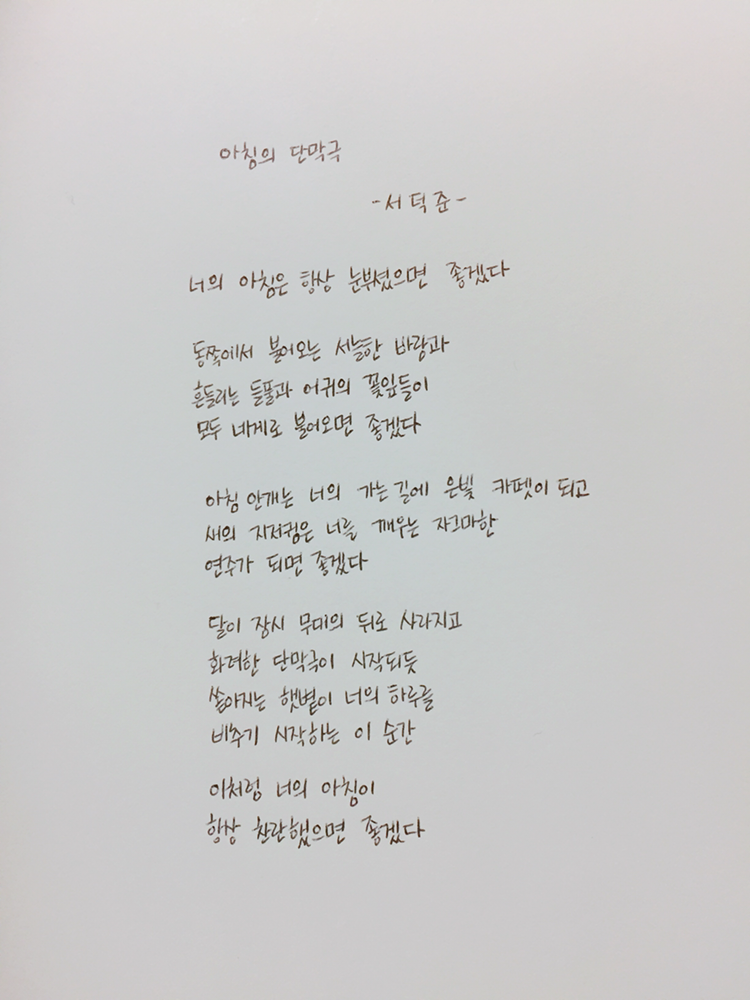 아침의 단막극
-서덕준-
너의 아침은 항상 눈부셨으면 좋겠다
동쪽에서 불어오는 서늘한 바람과
흔들리는 들풀과 어귀의 꽃잎들이
모두 네게로 불어오면 좋겠다
아침 안개는 너의 가는 길에 은빛 카펫이 되고
새의 지저귐은 너를 깨우는 자그마한
연주가 되면 좋겠다
달이 잠시 무대의 뒤로 사라지고
화려한 단막극이 시작되듯
쏟아지는 햇볕이 너의 하루를
비추기 시작하는 이 순간
이처럼 너의 아침이
항상 찬란했으면 좋겠다